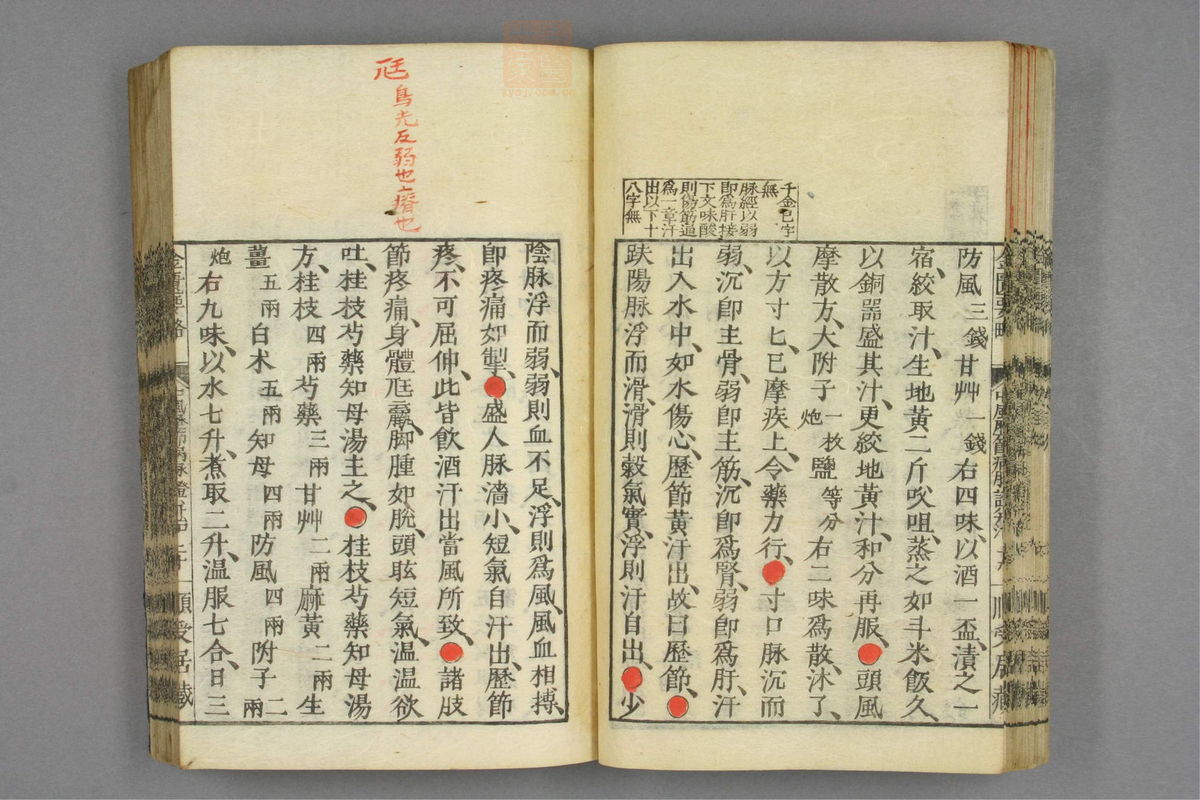 千金已字
無
脉經以弱
即爲肝接
下文味酸
則傷筋通
爲一章汗
出以下十
八字無
防風三錢甘艸一錢右四味、以酒一盃、漬之一
宿、絞取汁、生地黃二斤㕮咀、蒸之如斗米飯久、
以銅器盛其汁、更絞地黃汁、和分再服、頭風
摩散方、大附子一枚炮鹽等分右二味爲散、沐了、
以方寸匕、已摩疾上、令藥力行、寸口脉沉而
弱、沉卽主骨、弱卽主筋、沉卽爲腎、弱卽爲肝、汗
出入水中、如水傷心、歷節黃汗出、故曰歷節、
趺陽脉浮而滑、滑則穀氣實、浮則汗自出、少
尫
烏光反弱也瘠也
陰脉浮而弱、弱則血不足、浮則爲風、風血相搏、
卽疼痛如掣、盛人脉濇小、短氣自汗出、歷節
疼、不可屈伸、此皆飮酒汗出當風所致、諸肢
節疼痛、身體尫羸、脚腫如脫、頭眩短氣、温温欲
吐、桂枝芍藥知母湯主之、桂枝芍藥知母湯
方、桂枝四兩芍藥三兩甘艸二兩麻黃二兩生
薑五兩白朮五兩知母四兩防風四兩附子二兩
炮右九味、以水七升、煮取二升、温服七合、日三
順受居藏